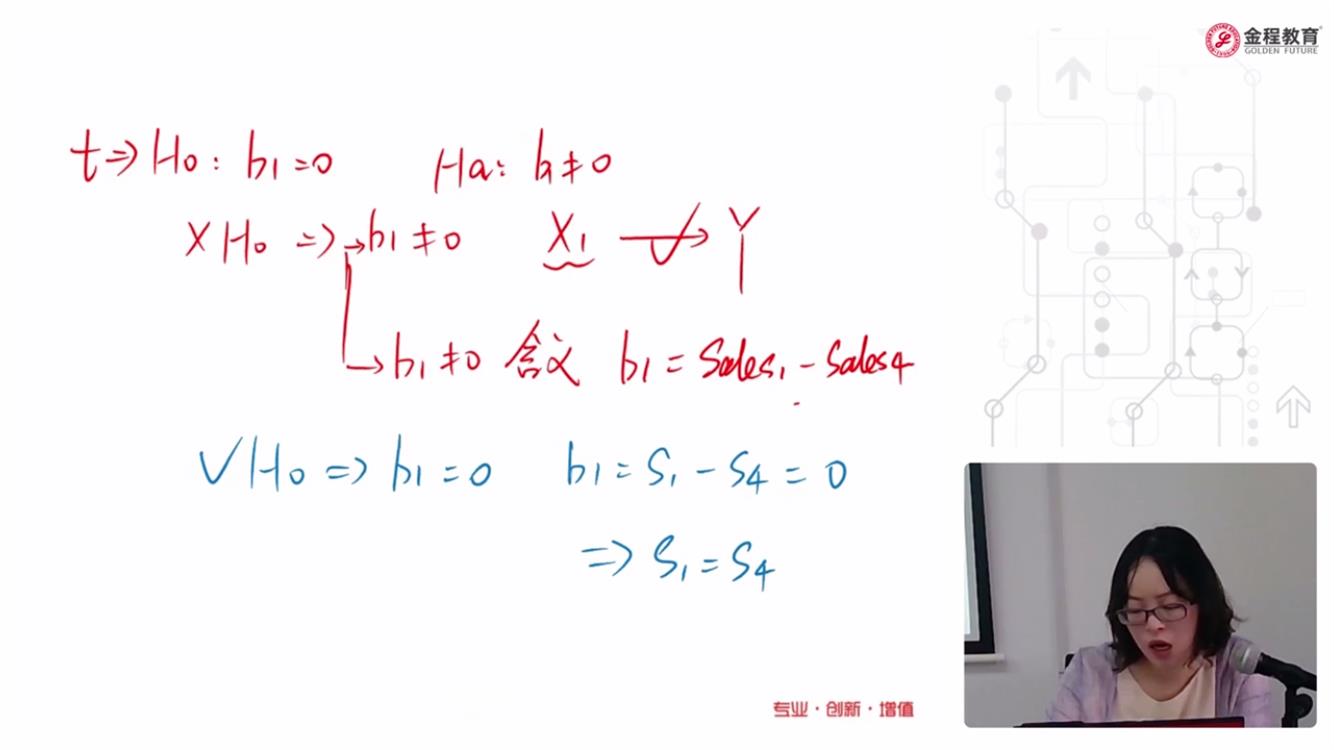 金程教育
GOLDEN FUTURE
t => H0: b1=0 Ha: b1≠0
× H0 => → b1≠0 X1 → Y
→ b1≠0 含义 b1 = Sales1 - Sales4
√ H0 => b1=0 b1 = S1 - S4 = 0
=> S1 = S4
专业·创新·增值